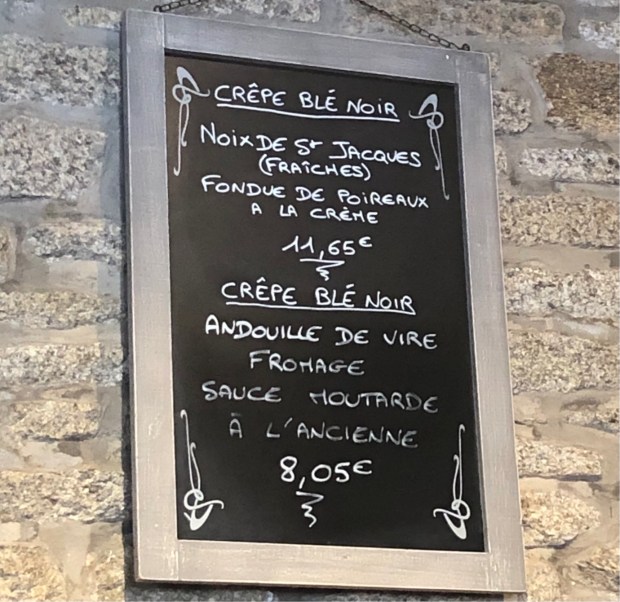 CRÊPE BLÉ NOIR
NOIX DE St JACQUES
(FRAÎCHES)
FONDUE DE POIREAUX
A LA CRÈME
11,65€
CRÊPE BLÉ NOIR
ANDOUILLE DE VIRE
FROMAGE
SAUCE MOUTARDE
À L'ANCIENNE
8,05€